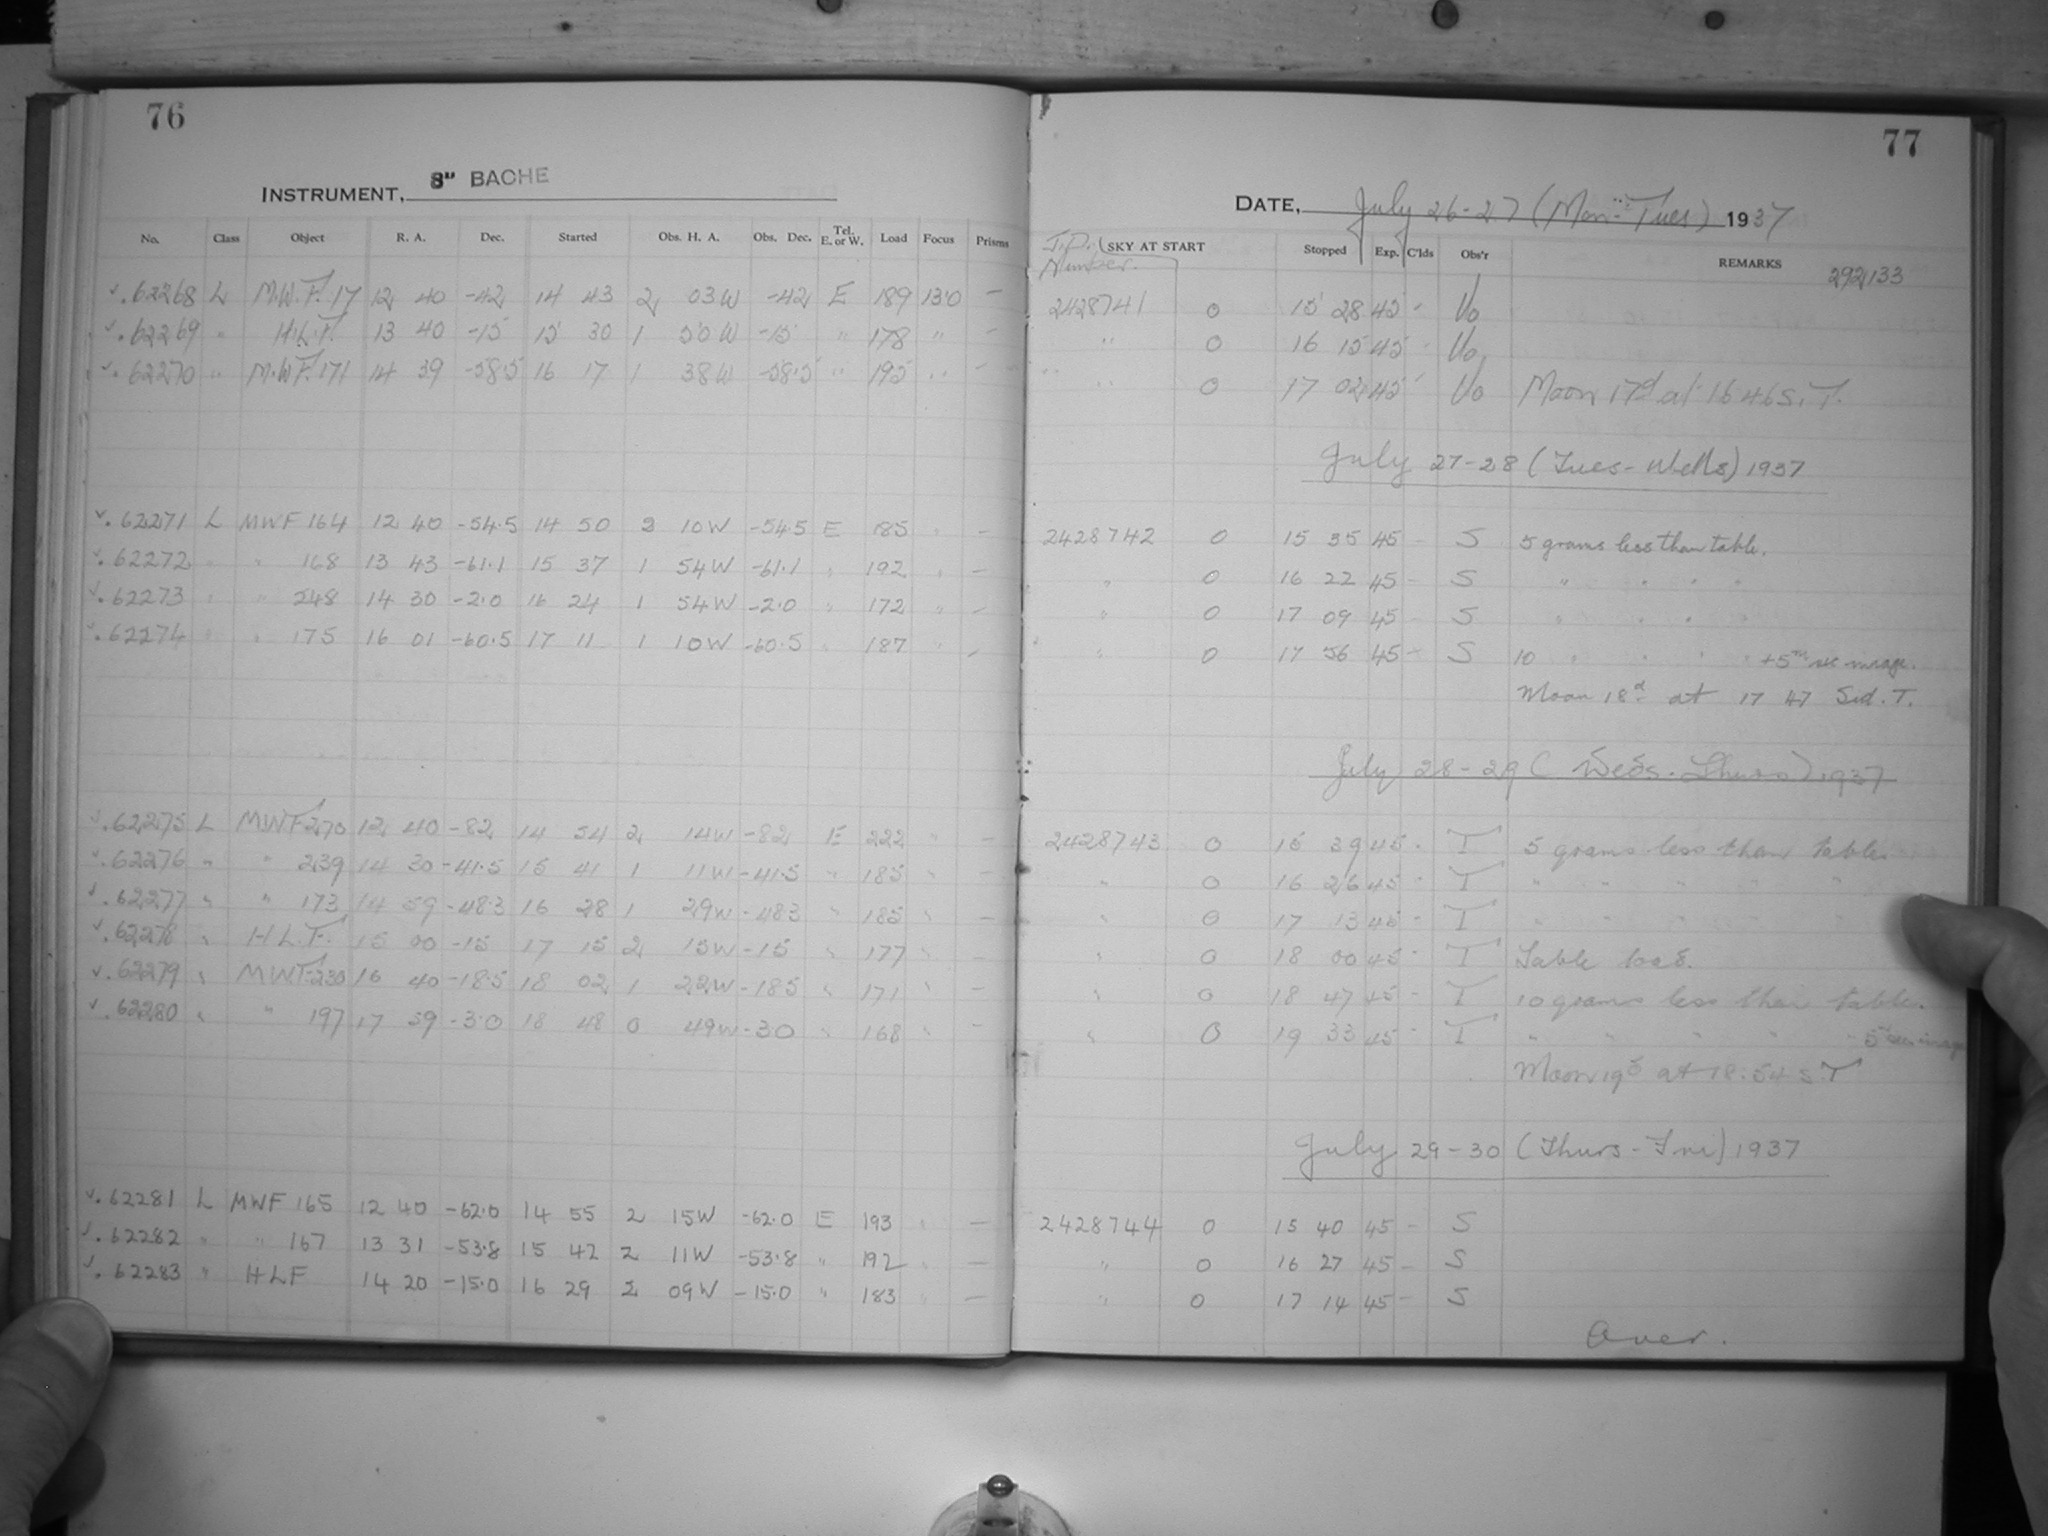 76
INSTRUMENT, 8" BACHE
No. Class Object R. A. Dec. Started Obs. H. A. Obs. Dec. Tel. E. or W. Load Focus Prisms
.62268 L M.W.F. 17 12 40 -42 14 43 2 03W -42 E 189 13.0 -
.62269 " H.L.F. 13 40 -15 15 30 1 50W -15 " 178 " -
.62270 " M.W.F. 171 14 39 -58.5 16 17 1 38W -58.5 " 195 " -
.62271 L MWF 164 12 40 -54.5 14 50 2 10W -54.5 E 185 " -
.62272 " " 168 13 43 -61.1 15 37 1 54W -61.1 " 192 " -
.62273 " " 248 14 30 -2.0 16 24 1 54W -2.0 " 172 " -
.62274 " " 175 16 01 -60.5 17 11 1 10W -60.5 " 187 " -
.62275 L MWF 270 12 40 -82 14 54 2 14W -82 E 222 " -
.62276 " " 239 14 30 -41.5 15 41 1 11W -41.5 " 185 " -
.62277 " " 173 14 59 -48.3 16 28 1 29W -48.3 " 185 " -
.62278 " H.L.F. 15 00 -15 17 15 2 15W -15 " 177 " -
.62279 " MWF 230 16 40 -18.5 18 02 1 22W -18.5 " 171 " -
.62280 " " 197 17 59 -3.0 18 48 0 49W -3.0 " 168 " -
.62281 L MWF 165 12 40 -62.0 14 55 2 15W -62.0 E 193 " -
.62282 " " 167 13 31 -53.8 15 42 2 11W -53.8 " 192 " -
.62283 " HLF 14 20 -15.0 16 29 2 09W -15.0 " 183 " -
77
DATE, July 26-27 (Mon-Tues) 1937
J.D. Number. SKY AT START Stopped Exp. C'lds Obs'r REMARKS
292,133
2428741 0 15 28 45 - Uo
" 0 16 15 45 - Uo
" 0 17 02 45 - Uo Moon 17d at 16 46 S.T.
July 27-28 (Tues-Weds) 1937
2428742 0 15 35 45 - S 5 grams less than table.
" 0 16 22 45 - S " " " "
" 0 17 09 45 - S " " " "
" 0 17 56 45 - S 10 " " " " +5m sec image.
Moon 18d at 17 47 Sid. T.
July 28-29 (Weds.-Thurs) 1937
2428743 0 15 39 45 - T 5 grams less than table
" 0 16 26 45 - T " " " " "
" 0 17 13 45 - T " " " " "
" 0 18 00 45 - T Table load.
" 0 18 47 45 - T 10 grams less than table.
" 0 19 33 45 - T " " " " " 5m sec image
Moon 19d at 18.54 S.T
July 29-30 (Thurs-Fri) 1937
2428744 0 15 40 45 - S
" 0 16 27 45 - S
" 0 17 14 45 - S
Over.